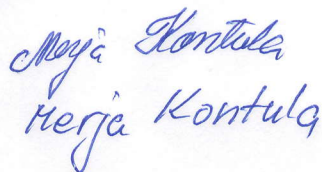 Merja Kontula
Merja Kontula